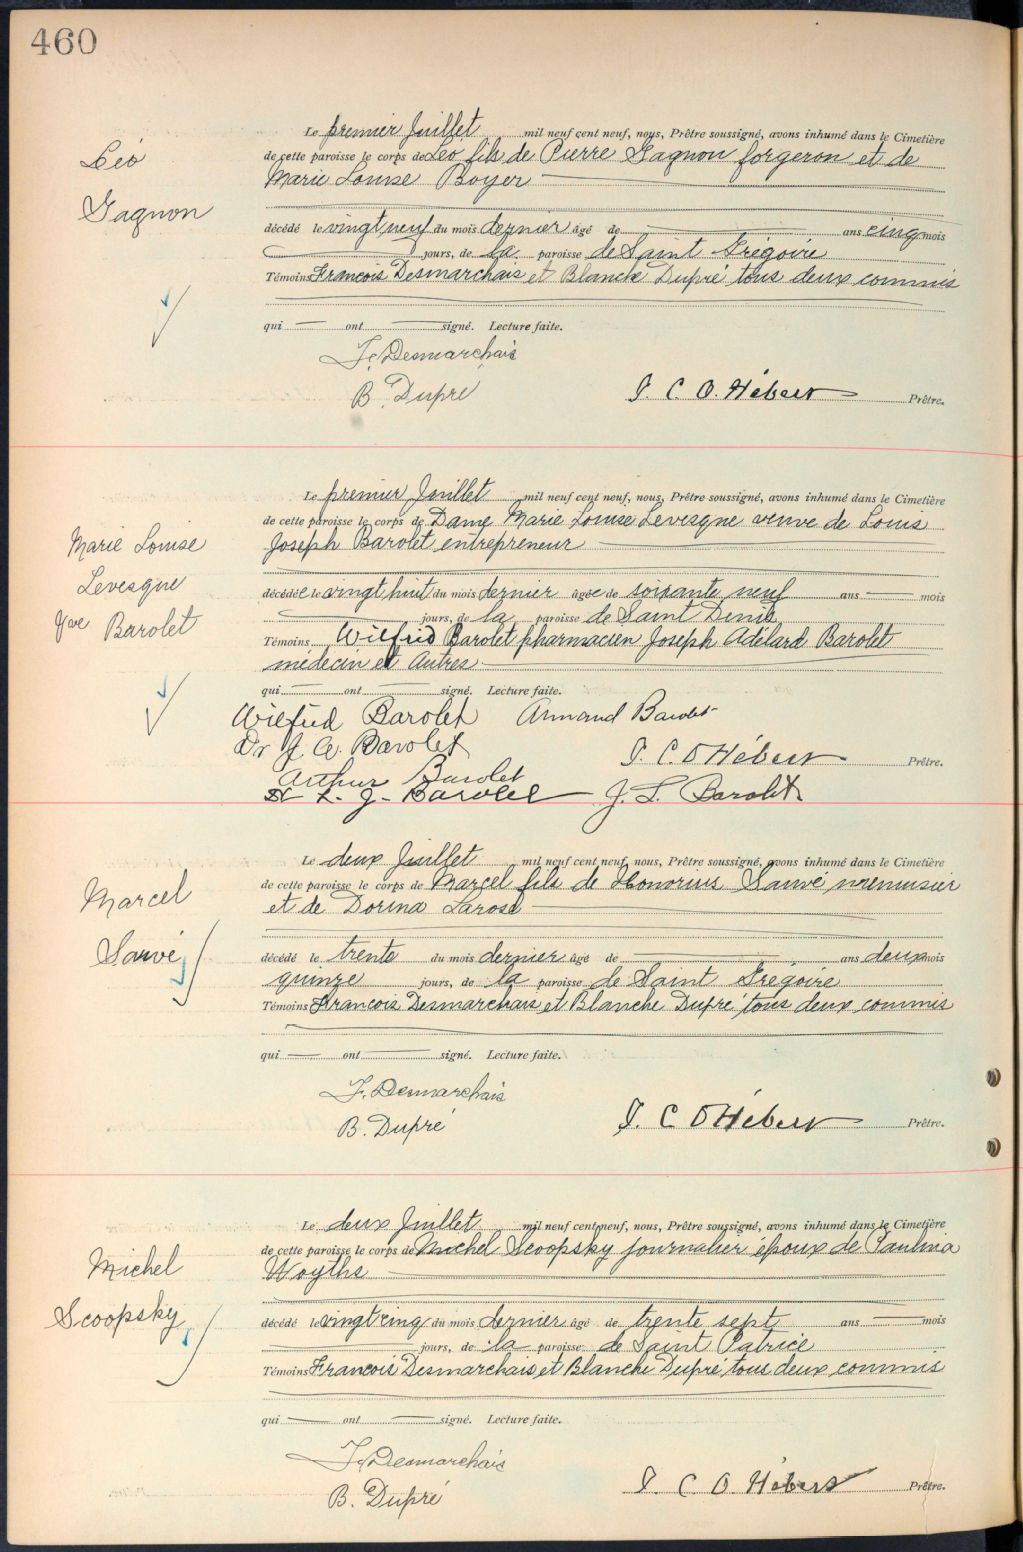 460
Léo
Gagnon
Le premier Juillet mil neuf cent neuf, nous, Prêtre soussigné, avons inhumé dans le Cimetière
de cette paroisse le corps de Léo fils de Pierre Gagnon forgeron et de
Marie Louise Boyer
décédé le vingt neuf du mois dernier âgé de ans cinq mois
jours, de la paroisse de Saint Grégoire
Témoins Francois Desmarchais et Blanche Dupré tous deux commis
qui ont signé. Lecture faite.
F. Desmarchais
B. Dupré
J. C. O. Hébert Prêtre.
Marie Louise
Levesque
Vve Barolet
Le premier Juillet mil neuf cent neuf, nous, Prêtre soussigné, avons inhumé dans le Cimetière
de cette paroisse le corps de Dame Marie Louise Levesque veuve de Louis
Joseph Barolet entrepreneur
décédée le vingt huit du mois dernier âgée de soixante neuf ans mois
jours, de la paroisse de Saint Denis
Témoins Wilfrid Barolet pharmacien Joseph Adélard Barolet
médecin et Autres
qui ont signé. Lecture faite.
Wilfrid Barolet Armand Barolet
Dr J. A. Barolet
J. C. O Hébert Prêtre.
Arthur Barolet
Dr L. J. Barolet J. L. Barolet
Marcel
Sauvé
Le deux Juillet mil neuf cent neuf, nous, Prêtre soussigné, avons inhumé dans le Cimetière
de cette paroisse le corps de Marcel fils de Honorius Sauvé menuisier
et de Dorina Larose
décédé le trente du mois dernier âgé de ans deux mois
quinze jours, de la paroisse de Saint Grégoire
Témoins Francois Desmarchais et Blanche Dupré tous deux commis
qui ont signé. Lecture faite.
F. Desmarchais
B. Dupré
J. C O Hébert Prêtre.
Michel
Scoopsky
Le deux Juillet mil neuf cent neuf, nous, Prêtre soussigné, avons inhumé dans le Cimetière
de cette paroisse le corps de Michel Scoopsky journalier époux de Paulina
Woyths
décédé le vingt cinq du mois dernier âgé de trente sept ans mois
jours, de la paroisse de Saint Patrice
Témoins Francois Desmarchais et Blanche Dupré tous deux commis
qui ont signé. Lecture faite.
F. Desmarchais
B. Dupré
J. C O. Hébert Prêtre.